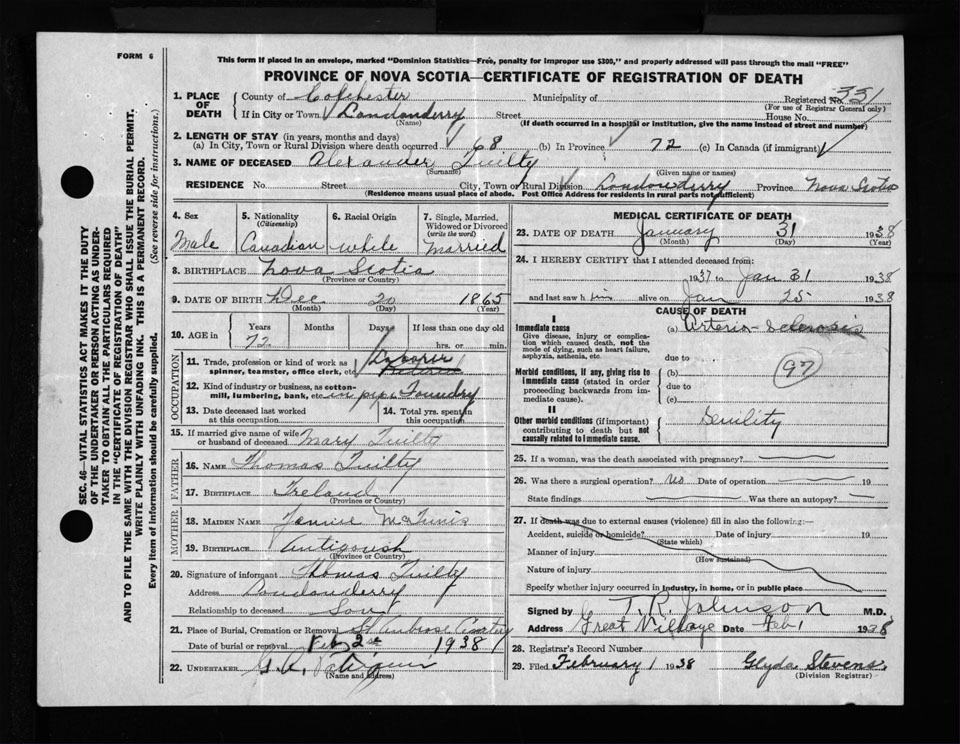 FORM 6
This form if placed in an envelope, marked "Dominion Statistics—Free, penalty for improper use $300," and properly addressed will pass through the mail "FREE"
PROVINCE OF NOVA SCOTIA—CERTIFICATE OF REGISTRATION OF DEATH
SEC. 46—VITAL STATISTICS ACT MAKES IT THE DUTY
OF THE UNDERTAKER OR PERSON ACTING AS UNDER-
TAKER TO OBTAIN ALL THE PARTICULARS REQUIRED
IN THE "CERTIFICATE OF REGISTRATION OF DEATH"
AND TO FILE THE SAME WITH THE DIVISION REGISTRAR WHO SHALL ISSUE THE BURIAL PERMIT.
WRITE PLAINLY WITH UNFADING INK. THIS IS A PERMANENT RECORD.
Every item of information should be carefully supplied. (See reverse side for instructions.)
1. PLACE OF DEATH County of Colchester Municipality of Registered No. 331
(For use of Registrar General only)
If in City or Town Londonderry Street House No.
(Name) (If death occurred in a hospital or institution, give the name instead of street and number)
2. LENGTH OF STAY (in years, months and days)
(a) In City, Town or Rural Division where death occurred 68 (b) In Province 72 (c) In Canada (if immigrant)
3. NAME OF DECEASED Alexander Tuilty
(Surname) (Given name or names)
RESIDENCE No. Street City, Town or Rural Division Londonderry Province Nova Scotia
(Residence means usual place of abode. Post Office Address for residents in rural parts not sufficient)
4. Sex Male
5. Nationality (Citizenship) Canadian
6. Racial Origin white
7. Single, Married, Widowed or Divorced (write the word) Married
8. BIRTHPLACE Nova Scotia
(Province or Country)
9. DATE OF BIRTH Dec 20 1865
(Month) (Day) (Year)
10. AGE in Years Months Days If less than one day old
72 hrs. or min.
OCCUPATION
11. Trade, profession or kind of work as spinner, teamster, office clerk, etc. Laborer Retired
12. Kind of industry or business, as cotton-mill, lumbering, bank, etc. in pipe Foundry
13. Date deceased last worked at this occupation
14. Total yrs. spent in this occupation
15. If married give name of wife or husband of deceased Mary Tuilty
FATHER
16. NAME Thomas Tuilty
17. BIRTHPLACE Ireland
(Province or Country)
MOTHER
18. MAIDEN NAME McInnis
19. BIRTHPLACE Antigonish
(Province or Country)
20. Signature of informant Thomas Tuilty
Address Londonderry
Relationship to deceased Son
21. Place of Burial, Cremation or Removal St Ambrose Cemetery
Date of burial or removal Feb 2nd 1938
22. UNDERTAKER G.A.
(Name and address)
MEDICAL CERTIFICATE OF DEATH
23. DATE OF DEATH January 31 1938
(Month) (Day) (Year)
24. I HEREBY CERTIFY that I attended deceased from:
1937 to Jan 31 1938
and last saw him alive on Jan 25 1938
CAUSE OF DEATH
I
Immediate cause (a) Arterio-Sclerosis
Give disease, injury or complication which caused death, not the mode of dying, such as heart failure, asphyxia, asthenia, etc.
due to
97
Morbid conditions, if any, giving rise to immediate cause (stated in order proceeding backwards from immediate cause).
(b)
due to
(c)
II
Other morbid conditions (if important) contributing to death but not causally related to immediate cause. Senility
25. If a woman, was the death associated with pregnancy?
26. Was there a surgical operation? No Date of operation 19
State findings Was there an autopsy?
27. If death was due to external causes (violence) fill in also the following:—
Accident, suicide or homicide? Date of injury 19
(State which)
Manner of injury
(How sustained)
Nature of injury
Specify whether injury occurred in industry, in home, or in public place
Signed by T. R. Johnson M.D.
Address Great Village Date Feb 1 1938
28. Registrar's Record Number
29. Filed February 1 1938 Glyda Stevens
(Division Registrar)